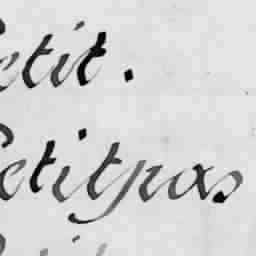 Petit.
Petitpas